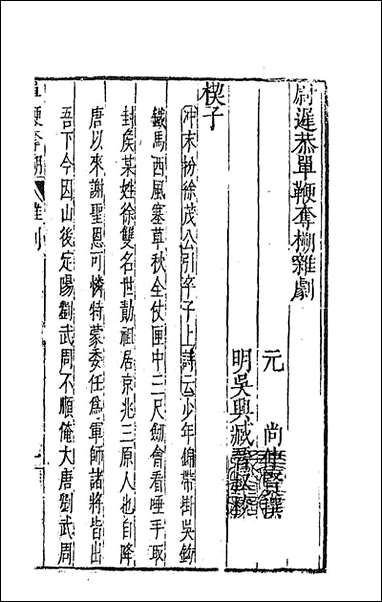 尉遲恭單鞭奪槊雜劇
元 尚仲賢撰
明吳興臧晉叔校
楔子
冲末扮徐茂公引卒子上詩云少年錦帶掛吳鈎
鐵馬西風塞草秋全仗匣中三尺劒會看唾手取
封侯某姓徐雙名世勣祖居京兆三原人也自降
唐以來謝聖恩可憐特蒙委任爲軍師諸將皆出
吾下今因山後定陽劉武周不順俺大唐劉武周